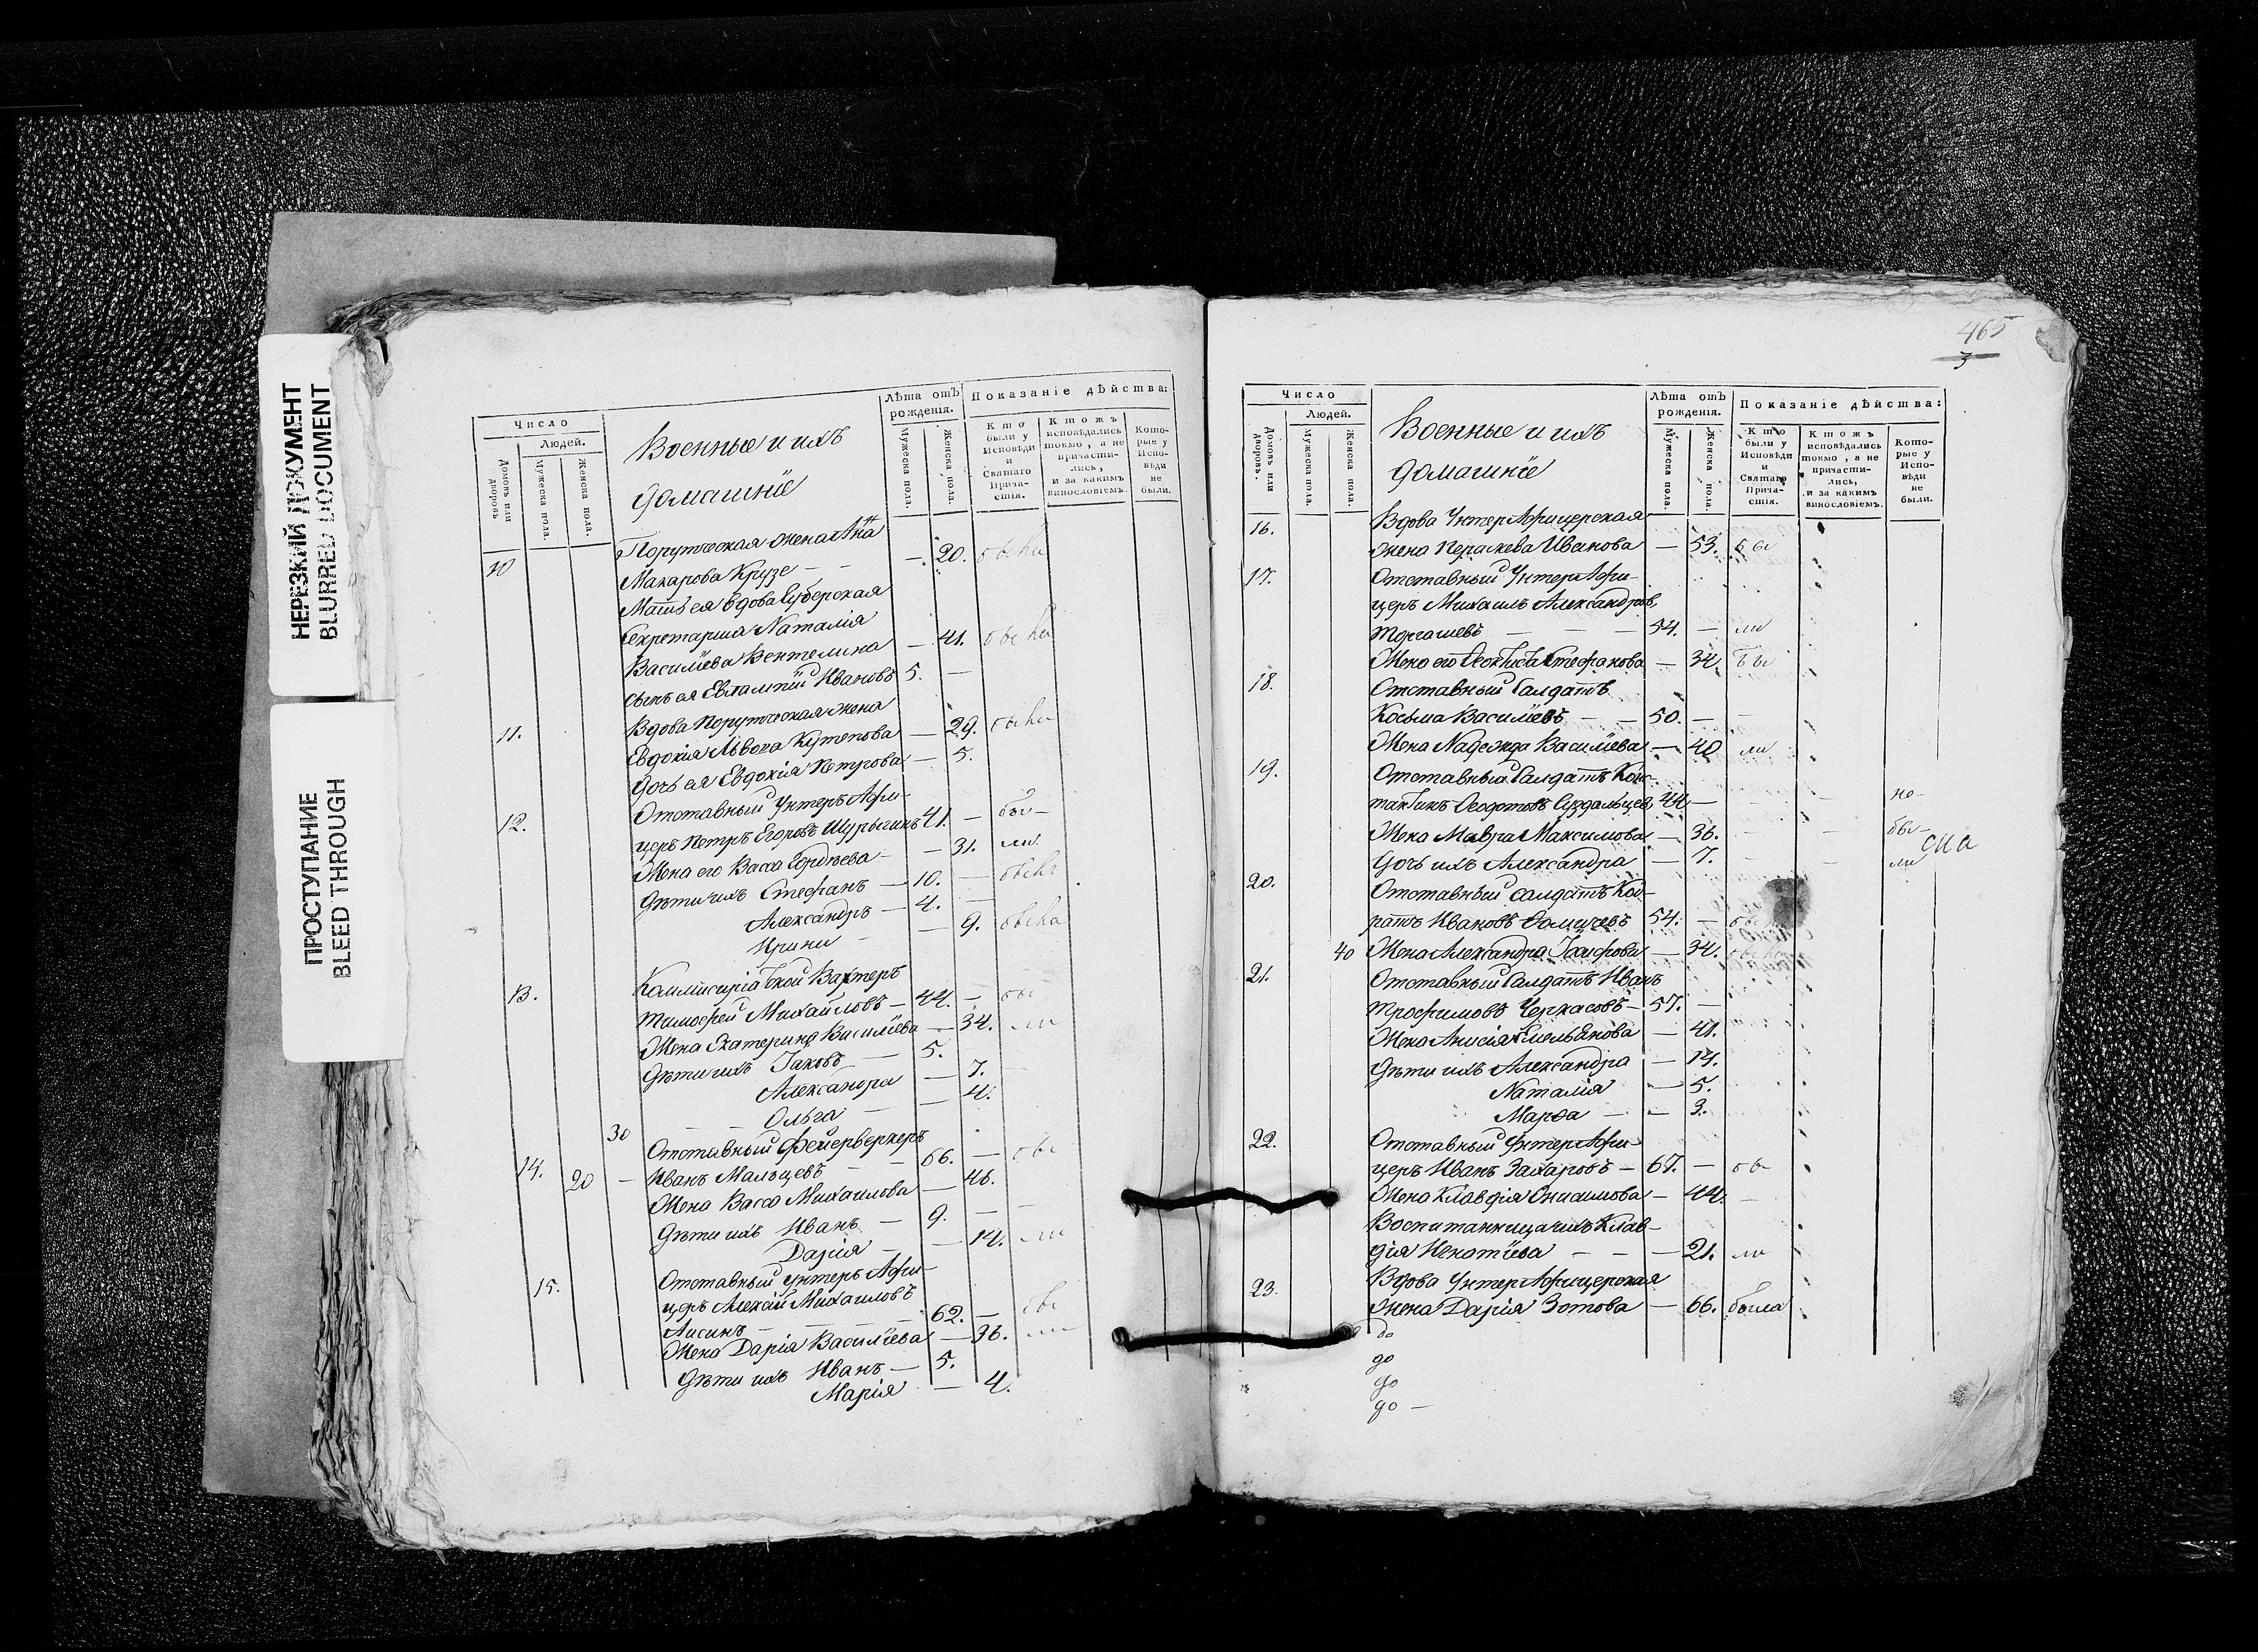 НЕРЕЗКИЙ ДОКУМЕНТ
BLURRED DOCUMENT
ПРОСТУПАНИЕ
BLEED THROUGH
Число
Людей.
Домовъ или дворовъ
Мужеска пола.
Женска пола.
Военные и ихъ
домашніе
Лѣта отъ рожденія.
Мужеска пола.
Женска пола.
Показаніе дѣйства:
Кто были у Исповѣди и Святаго Причастія.
Ктожъ исповѣдались токмо, а не причастились, и за какимъ винословіемъ.
Которые у Исповѣди не были.
10 Порутческая жена Анна
Макарова Крузе — — 20.
Мать ея вдова Губерская
Секретарша Наталія
Василіева Вентелина — 41.
сынъ ея Евлампій Ивановъ 5. —
11. Вдова Порутческая жена
Евдокія Львова Кутепова — 29.
Дочь ея Евдокія Петрова — 5.
12. Отставный Унтеръ Афи-
церъ Петръ Егоровъ Шурыгинъ 41. — бы-
Жена его Васса Гордѣева — 31. ли
Дѣти ихъ Стефанъ — 10. —
Александръ — 4. —
Ирина — 9.
13. Вахтеръ
Тимофей Михайловъ — 44. —
Жена Екатерина Василіева — 34. ли
Дѣти ихъ Іаковъ — 5.
Александра — 7.
30 Ольга — 4.
14. Отставный Фейерверкеръ
20 — Иванъ Мальцевъ — — 66. —
Жена Васса Михаилова — 46.
Дѣти ихъ Иванъ — 9. —
Дарія — 14. ли
15. Отставный Унтеръ Афи-
церъ Алексій Михаиловъ
Лисинъ — — — 62. —
Жена Дарія Василіева — 36. ли
Дѣти ихъ Иванъ — 5.
Марія — 4.
465
3
Число
Людей.
Домовъ или дворовъ.
Мужеска пола.
Женска пола.
Военные и ихъ
домашніе
Лѣта отъ рожденія.
Мужеска пола.
Женска пола.
Показаніе дѣйства:
Кто были у Исповѣди и Святаго Причастія.
Ктожъ исповѣдались токмо, а не причастились, и за какимъ винословіемъ.
Которые у Исповѣди не были.
16. Вдова Унтер Афицерская
жена Параскева Иванова — 53. бы
17. Отставный Унтер Афи-
церъ Михаилъ Александровъ
Торгашевъ — — — 54. — ли
Жена его Ѳеоктиста Стефанова — 34. бы
18. Отставный Салдатъ
Косьма Василіевъ — — 50. — —
Жена Надежда Василіева — 40 ли
19. Отставный Салдатъ Конс-
тантинъ Ѳедотовъ Суздальцевъ 44 — — не-
Жена Мавра Максимова — 36. — бы-
Дочь ихъ Александра — 7. — ли
20. Отставный Салдатъ Код-
ратъ Ивановъ 54. —
40 Жена Александра — 34.
21. Отставный Салдатъ Иванъ
Трофимовъ Черкасовъ — 57. —
Жена Анисія Емельянова — 41.
Дѣти ихъ Александра — 14.
Наталія — 5.
Марѳа — — 3.
22. Отставный Унтер Афи-
церъ Иванъ Захаровъ — 67. — бы
Жена Клавдія Онисимова — 44. —
Воспитанница ихъ Клав-
дія Игнатіева — — — 21. ли
23. Вдова Унтер Афицерская
жена Дарія Зотова — 66. была
до
до
до
до —